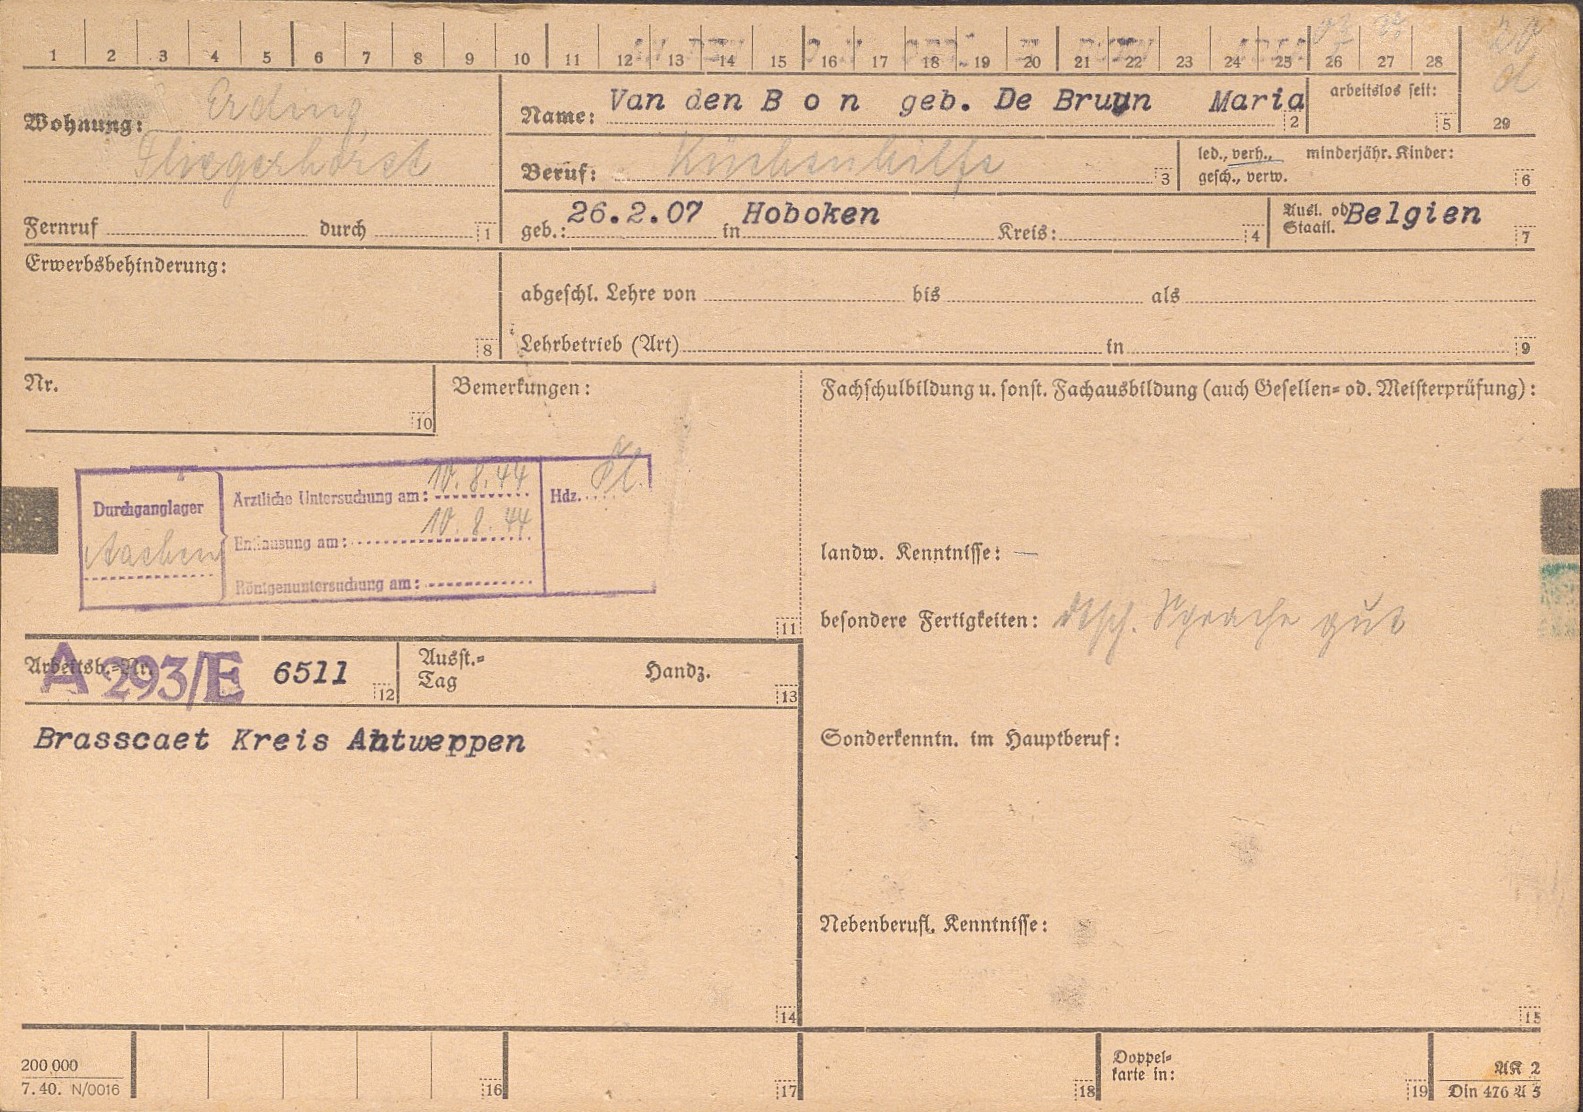 1 2 3 4 5 6 7 8 9 10 11 12 13 14 15 16 17 18 19 20 21 22 23 24 25 26 27 28
29
Wohnung: Erding
Fliegerhorst
Fernruf durch 1
Name: Van den B o n geb. De Bruyn Maria 2
arbeitslos seit: 5
Beruf: Küchenhilfe 3
led., verh., minderjähr. Kinder:
gesch., verw. 6
geb.: 26.2.07 in Hoboken Kreis: 4
Ausl. od. Belgien
Staatl. 7
Erwerbsbehinderung: 8
abgeschl. Lehre von bis als
Lehrbetrieb (Art) in 9
Nr. 10
Bemerkungen:
Durchganglager
Aachen
Ärztliche Untersuchung am: 10.8.44
Entlausung am: 10.8.44
Röntgenuntersuchung am:
Hdz.
11
Fachschulbildung u. sonst. Fachausbildung (auch Gesellen- od. Meisterprüfung):
landw. Kenntnisse: —
besondere Fertigkeiten: dtsch. Sprache gut
Arbeitsb.-Nr. A 293/E 6511 12
Ausst.-
Tag Handz. 13
Brasscaet Kreis Antweppen
14
Sonderkenntn. im Hauptberuf:
Nebenberufl. Kenntnisse:
15
200 000
7. 40. N/0016
16 17 18
Doppel-
karte in: 19
AK 2
Din 476 A 5